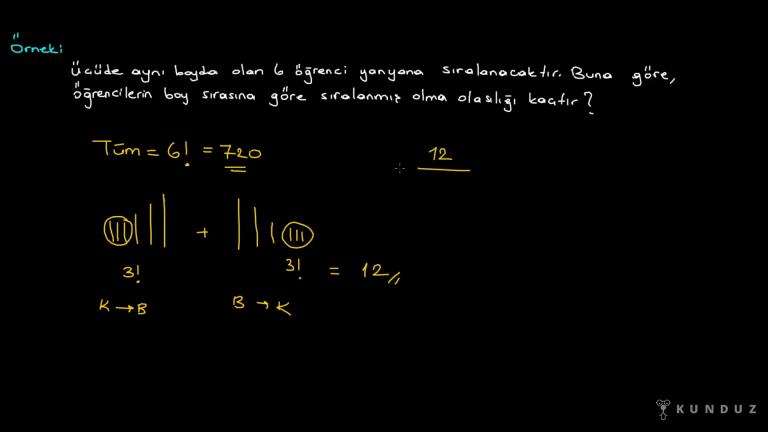 Örnek:
Üçüde aynı boyda olan 6 öğrenci yanyana sıralanacaktır. Buna göre,
öğrencilerin boy sırasına göre sıralanmış olma olasılığı kaçtır?
Tüm = 6! = 720
12
+
3! 3! = 12
K → B B → K
KUNDUZ